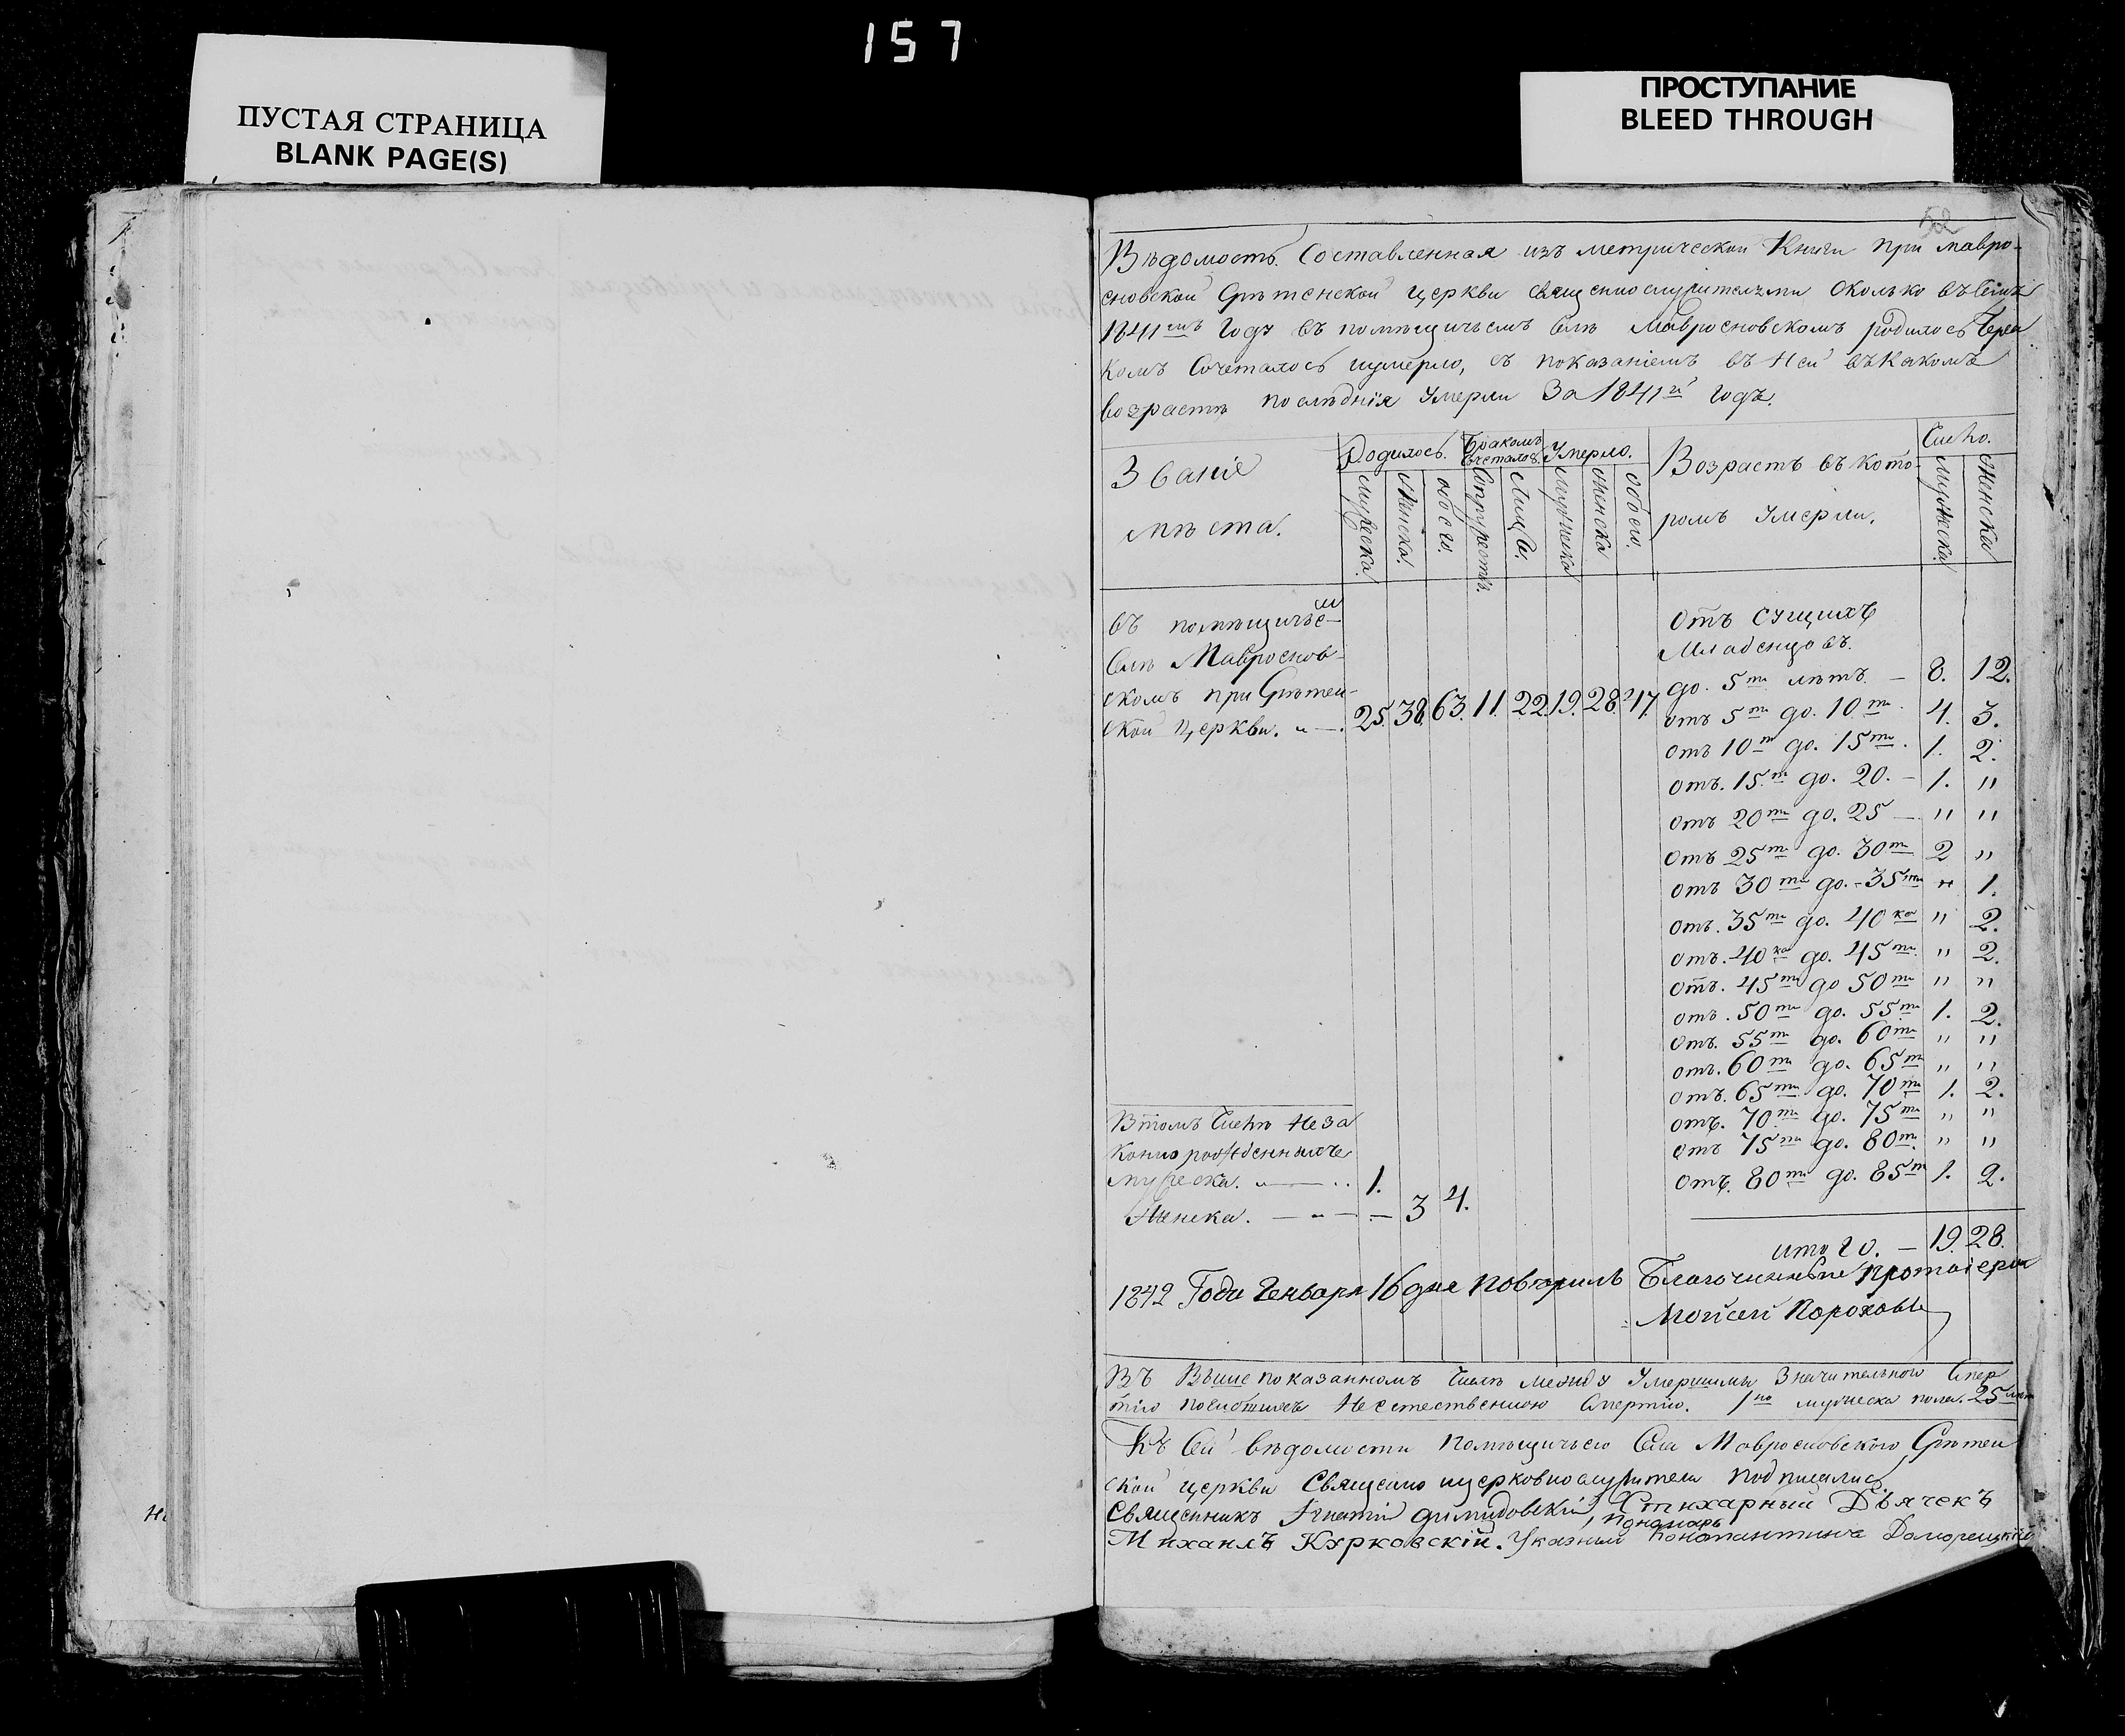 157
ПУСТАЯ СТРАНИЦА
BLANK PAGE(S)
ПРОСТУПАНИЕ
BLEED THROUGH
52
Вѣдомость Составленная изъ метрической Книги при мавро-
сновской Срѣтенской церкви священнослужителями сколько въ семъ
1841мъ Году въ помѣщичьемъ селѣ Мавросновскомъ родилось Бра
комъ Сочеталось иумерло, съ показаніемъ въ Ней въ Какомъ
возрастѣ послѣднія Умерли За 1841й Годъ.
Званіе
мѣста.
Родилось.
Бракомъ
Сочеталось
Умерло.
Возрастъ въ кото-
ромъ Умерли.
Число.
Мужеска.
Женска.
обоего.
Супружествъ.
Лицъ.
Мужеска
Женска
обоего.
Мужеска
Женска
въ помѣщичьемъ
Селѣ Мавроснов-
скомъ при Срѣтен-
ской церкви. 25. 38. 63. 11. 22. 19. 28. 47.
Отъ сущихъ
Младенцовъ.
до. 5ти лѣтъ — 8. 12.
отъ 5ти до. 10ти 4. 3.
отъ 10ти до. 15ти. 1. 2.
отъ. 15ти до. 20. — 1. "
отъ 20ти до. 25 — " "
отъ 25ти до. 30ти 2 "
отъ 30ти до. 35ти " 1.
отъ. 35ти до. 40ка " 2.
отъ. 40ка до. 45ти " 2.
отъ. 45ти до 50ти " "
отъ. 50ти до. 55ти 1. 2.
отъ. 55ти до. 60ти " "
отъ. 60ти до. 65ти " "
отъ. 65ти до. 70ти 1. 2.
отъ. 70ти до. 75ти " "
отъ 75ти до. 80ти " "
отъ. 80ти до. 85ти 1. 2.
итого. — 19. 28.
Втомъ Числѣ Неза
конно рожденныхъ
мужеска. 1.
Женска. — 3 4.
1842 Года Генваря 16 дня повѣрилъ Благочинный протоіерей
Мойсей Пороховъ
Въ Выше показанномъ Числѣ между Умершими Значительною Смер
тію погибшихъ Не естественною Смертію. 1но мужеска пола. 25 лѣт
Къ Сей вѣдомости помѣщичьего Села Мавросновского Срѣтен
ской церкви Священно ицерковнослужители подписались
Священникъ Игнатій Димидовскій, Стихарный Дьячекъ
Михаилъ Курковскій. Указный пономарь Константинъ Доморецкій